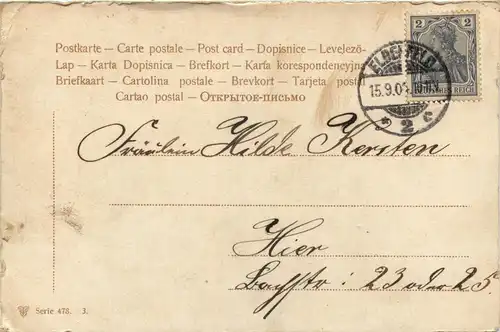 Postkarte – Carte postale – Post card – Dopisnice – Levelező-
Lap – Karta Dopisnica – Brefkort – Karta korespondencyjna
Briefkaart – Cartolina postale – Brevkort – Tarjeta postal
Cartao postal – Открытое-письмо
2 2
ELBERFELD
15.9.03
* 2 c
REICH
Fräulein Hilde Kersten
Hier
23 oder 25.
Serie 478. 3.